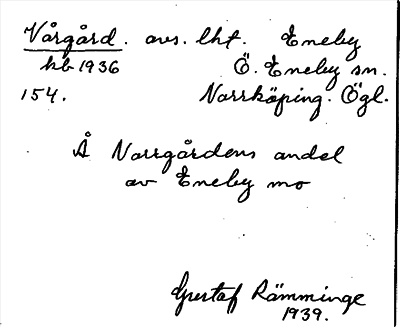 Vårgård. avs. lht. Eneby
kb 1936 Ö. Eneby sn.
154. Norrköping. Ögl.
Å Norrgårdens andel
av Eneby mo
Gustaf Rämminge
1939.